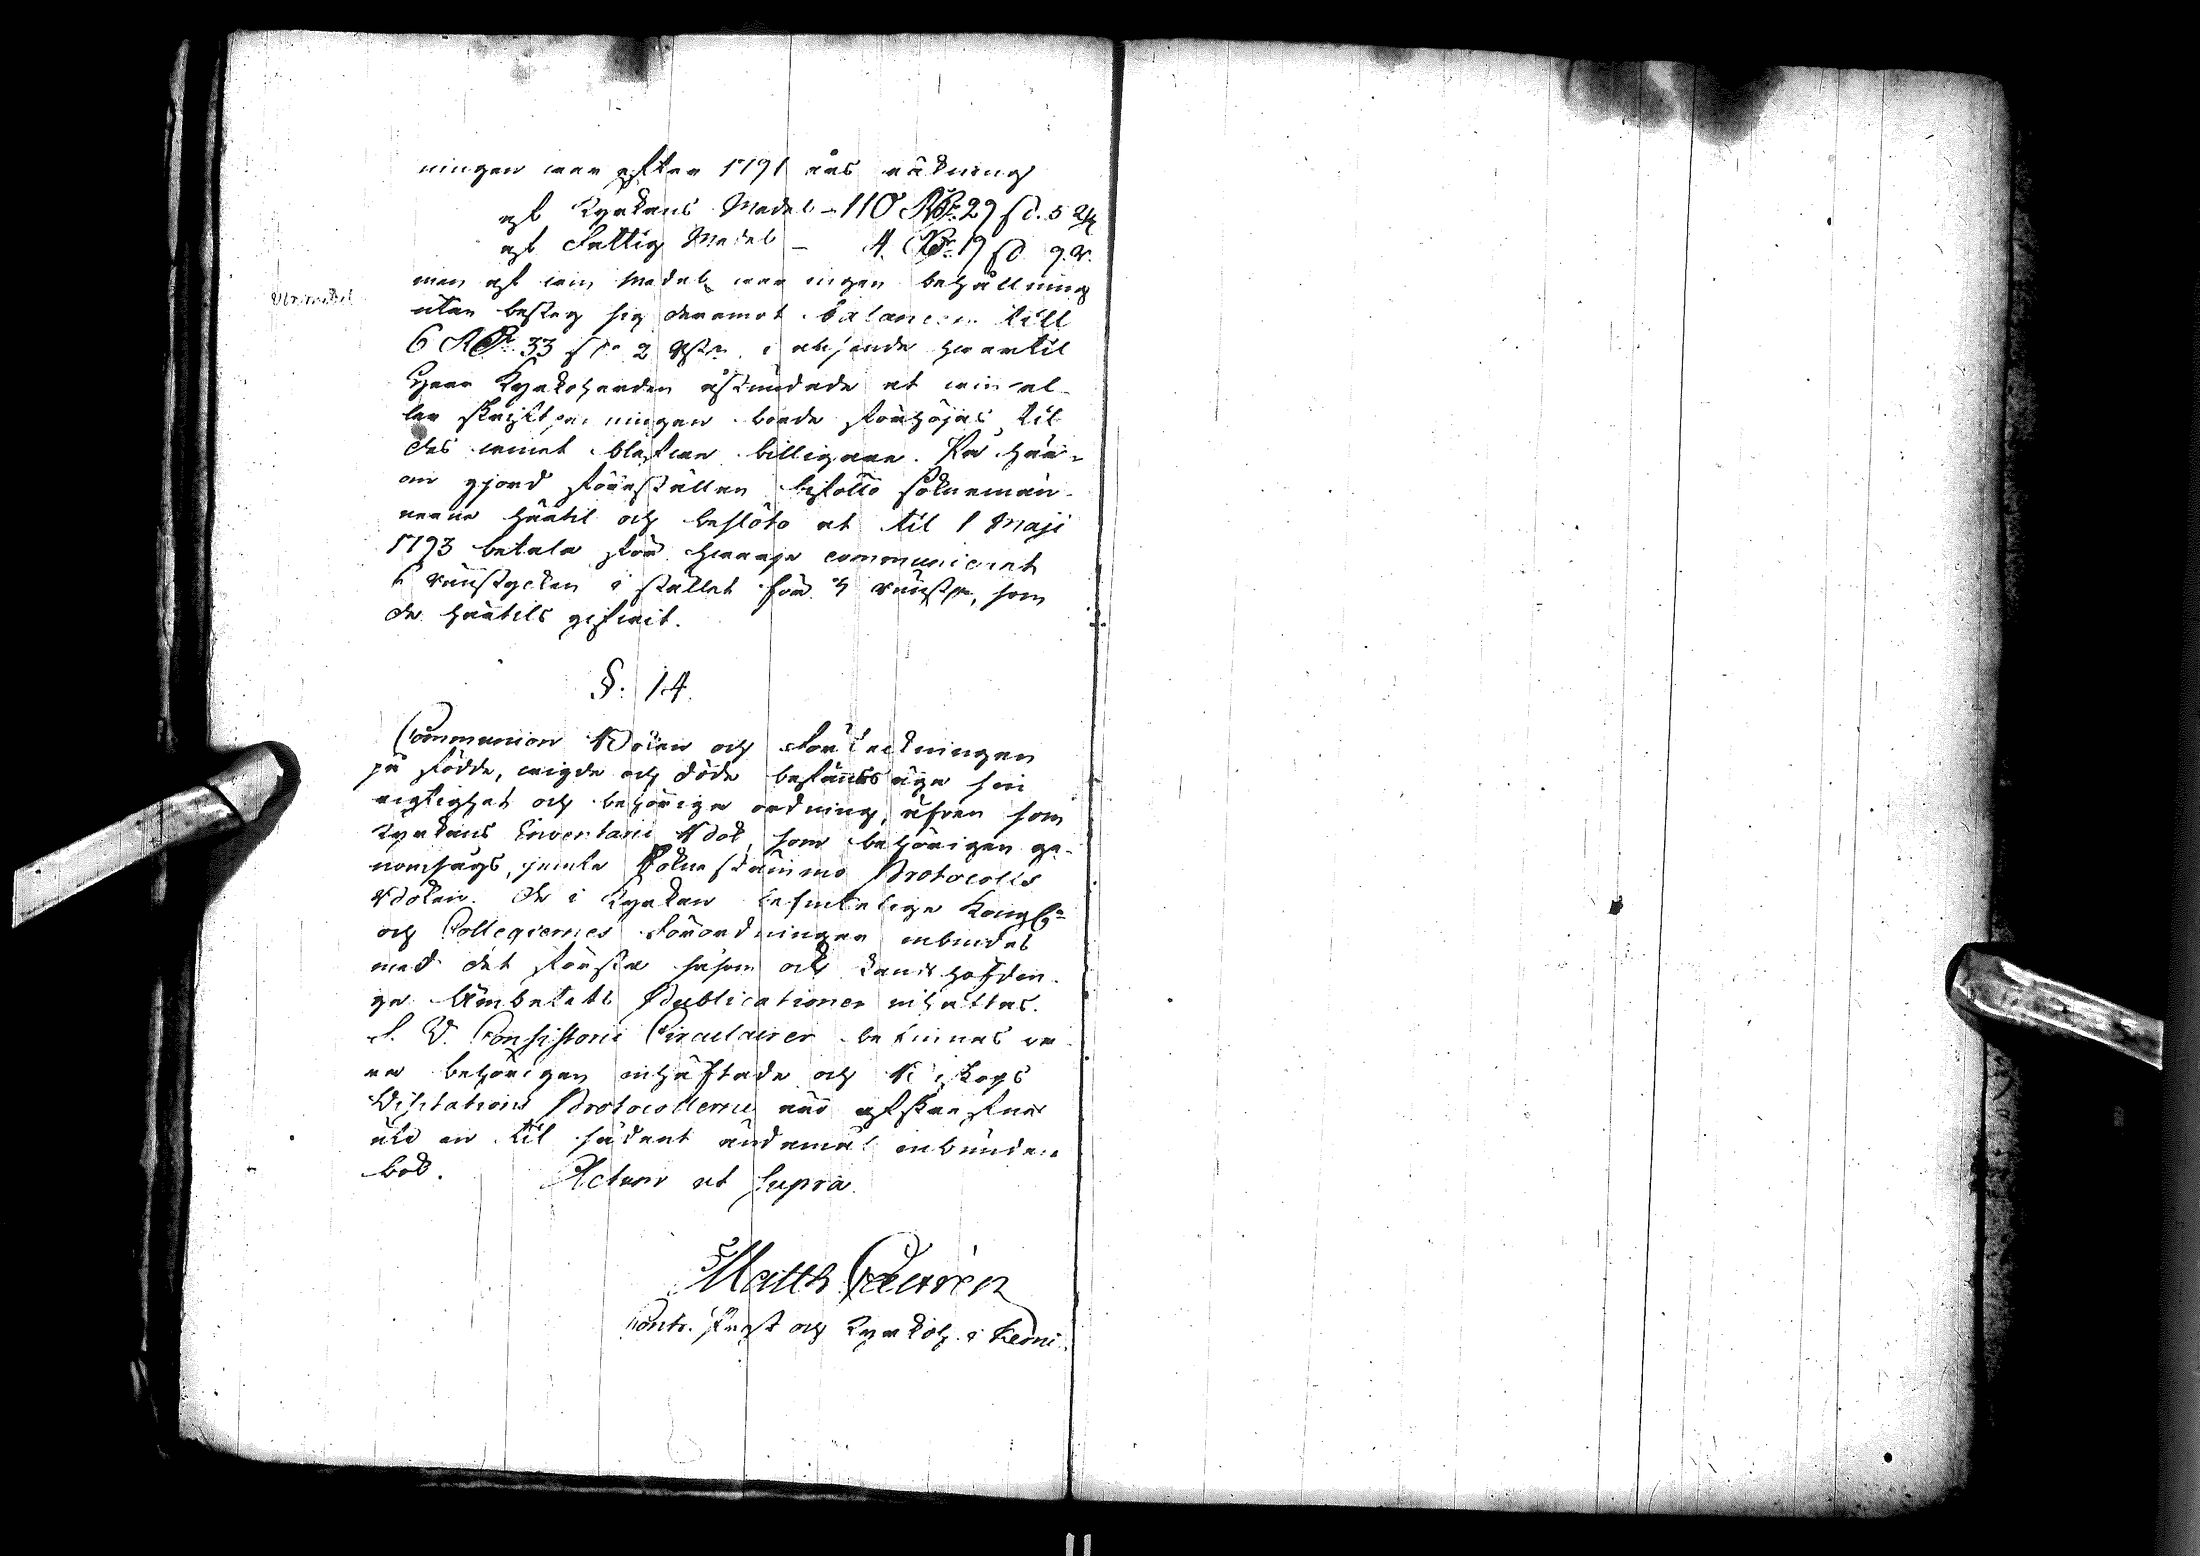 ningen war efter 1791 års räkning
af Kyrkans Medel – 110 Rdr 29 sk. 5
af Fattig Medel – 4 Rdr 19 sk 9 r.
men af win Medel war ingen behållning
utan besteg sig deremot balancen till
6 Rdr 33 sk 2 hwartil
Herr Kyrkoherden åstundade at win el-
ler skriftpenningen borde förhöjas til
des winet blefwe billigare. På här-
om gjord föreställan biföllo sokneman-
nerne härtil och beslöto at til 1 Maji
1793 betala för hwarje communicant
6 runstycken i stället för 4 runst., som
de härtils gifwit.
§. 14.
Communion Boken och Förteckningen
på födde, wigde och döde befanns äga sin
rigtighet och behöriga ordning, äfven som
Kyrkans Inventarii Bok, som behörigen ge-
nomsågs, jemte Sokne stämmo Protocolls
Boken. De i Kyrkan befintelige Kongl.
och Collegiernes Förordningar inbindas
med det första såsom och Landshöfdin-
ge Embetets Publicationer inhäftas.
S. V. Consistorii Circulairer befinnas va-
ra behörigen inhäftade och Biskops
Visitations Protocollerne äro afskrefne
uti en til sådant ändamål inbunden
bok. Actum ut Supra.
Matth
Contr. Prost och Kyrkoh. i Kemi.